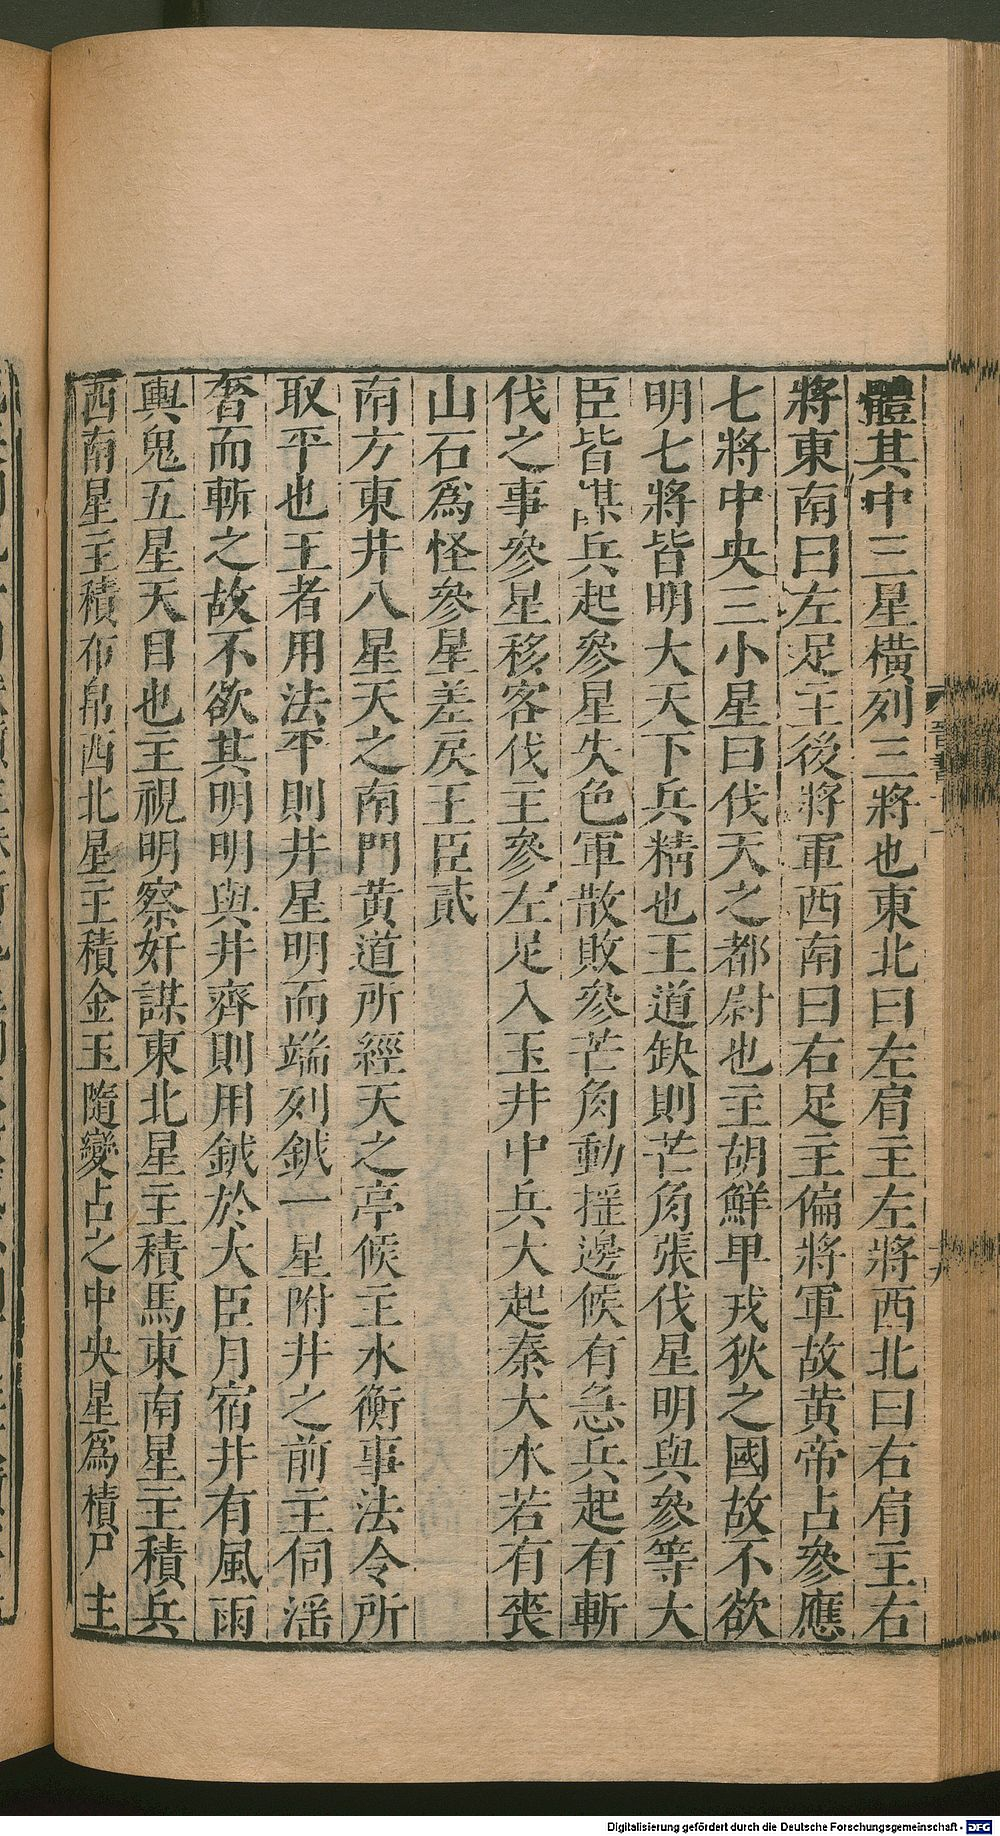 體其中三星橫列三將也東北曰左肩主左將西北曰右肩主右
將東南曰左足主後將軍西南曰右足主偏將軍故黃帝占參應
七將中央三小星曰伐天之都尉也主胡鮮卑戎狄之國故不欲
明七將皆明大天下兵精也王道缺則芒角張伐星明與參等大
臣皆謀兵起參星失色軍散敗參芒角動搖邊候有急兵起有斬
伐之事參星移客伐主參左足入玉井中兵大起秦大水若有喪
山石爲怪參星差戾王臣貳
南方東井八星天之南門黃道所經天之亭候主水衡事法令所
取平也王者用法平則井星明而端列鉞一星附井之前主伺淫
奢而斬之故不欲其明明與井齊則用鉞於大臣月宿井有風雨
輿鬼五星天目也主視明察奸謀東北星主積馬東南星主積兵
西南星主積布帛西北星主積金玉隨變占之中央星爲積尸主
晉書十一
十八
Digitalisierung gefördert durch die Deutsche Forschungsgemeinschaft - DFG